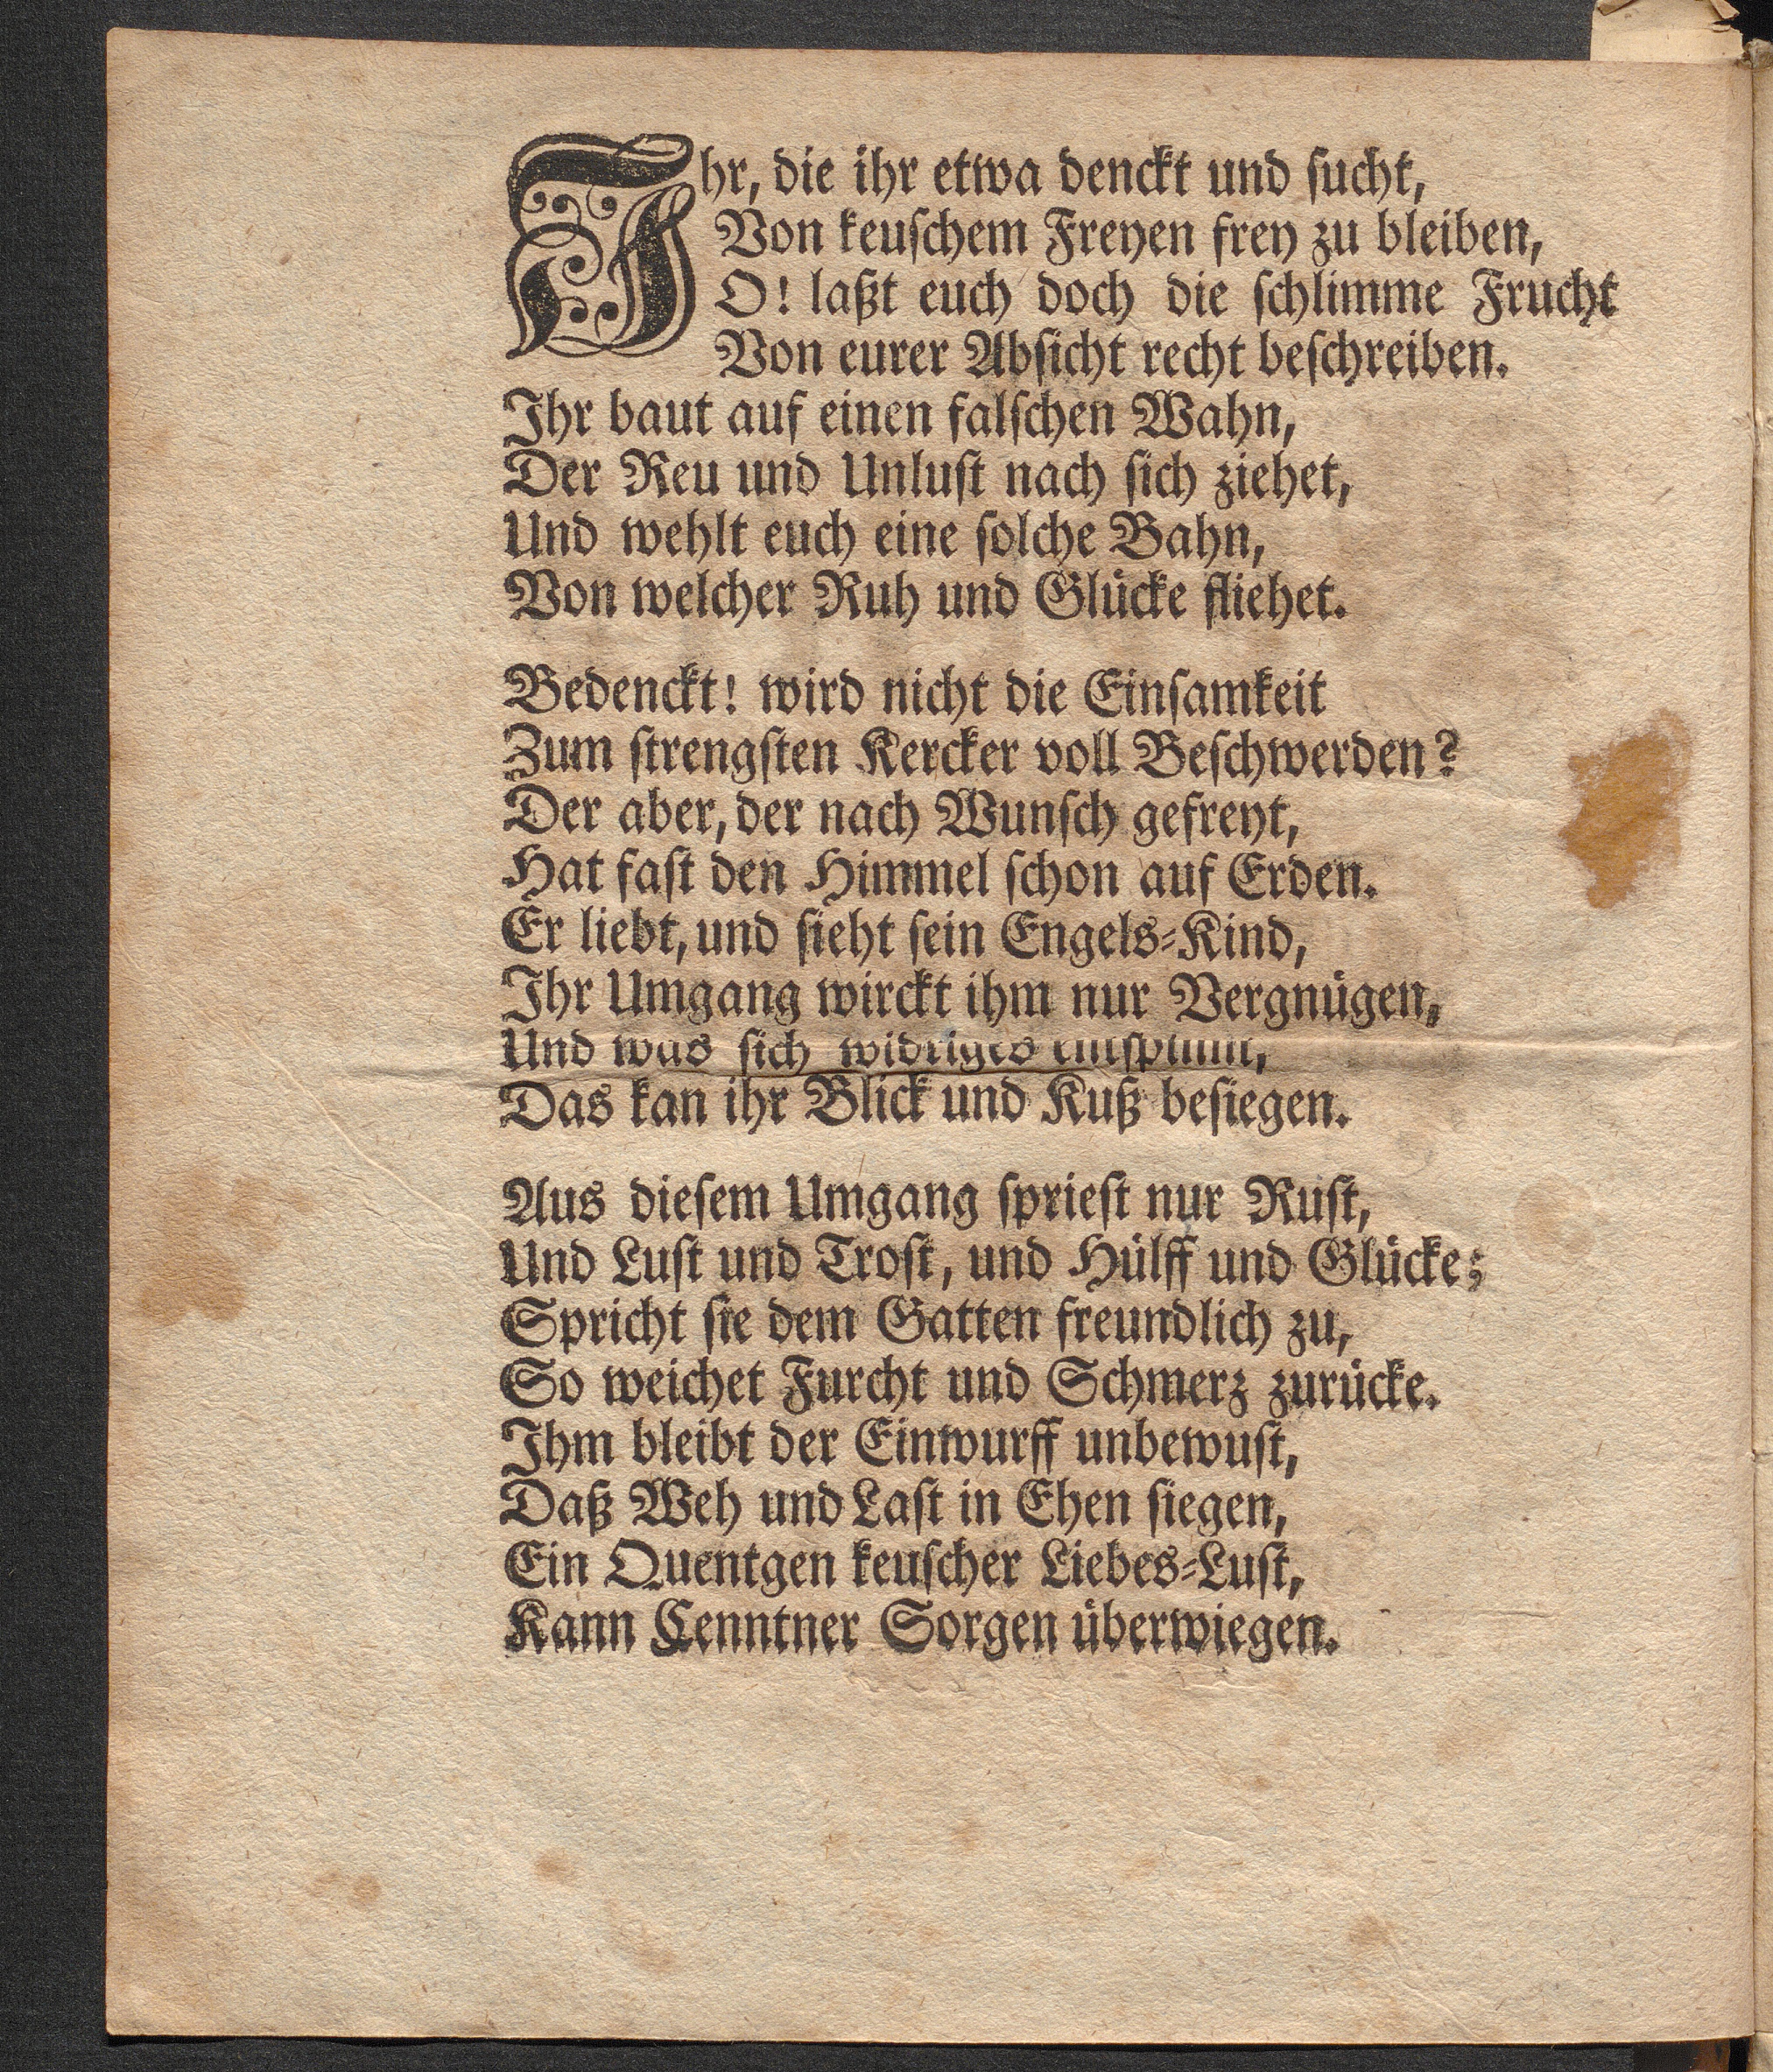 Ihr, die ihr etwa denckt und ſucht,
Von keuſchem Freyen frey zu bleiben,
O! laßt euch doch die ſchlimme Frucht
Von eurer Abſicht recht beſchreiben.
Ihr baut auf einen falſchen Wahn,
Der Reu und Unluſt nach ſich ziehet,
Und wehlt euch eine ſolche Bahn,
Von welcher Ruh und Glücke fliehet.
Bedenckt! wird nicht die Einſamkeit
Zum ſtrengſten Kercker voll Beſchwerden?
Der aber, der nach Wunſch gefreyt,
Hat faſt den Himmel ſchon auf Erden.
Er liebt, und ſieht ſein Engels-Kind,
Ihr Umgang wirckt ihm nur Vergnügen,
Und was ſich widriges entſpinnt,
Das kan ihr Blick und Kuß beſiegen.
Aus dieſem Umgang ſprieſt nur Ruſt,
Und Luſt und Troſt, und Hülff und Glücke;
Spricht ſie dem Gatten freundlich zu,
So weichet Furcht und Schmerz zurücke.
Ihm bleibt der Einwurff unbewuſt,
Daß Weh und Laſt in Ehen ſiegen,
Ein Quentgen keuſcher Liebes-Luſt,
Kann Cenntner Sorgen überwiegen.